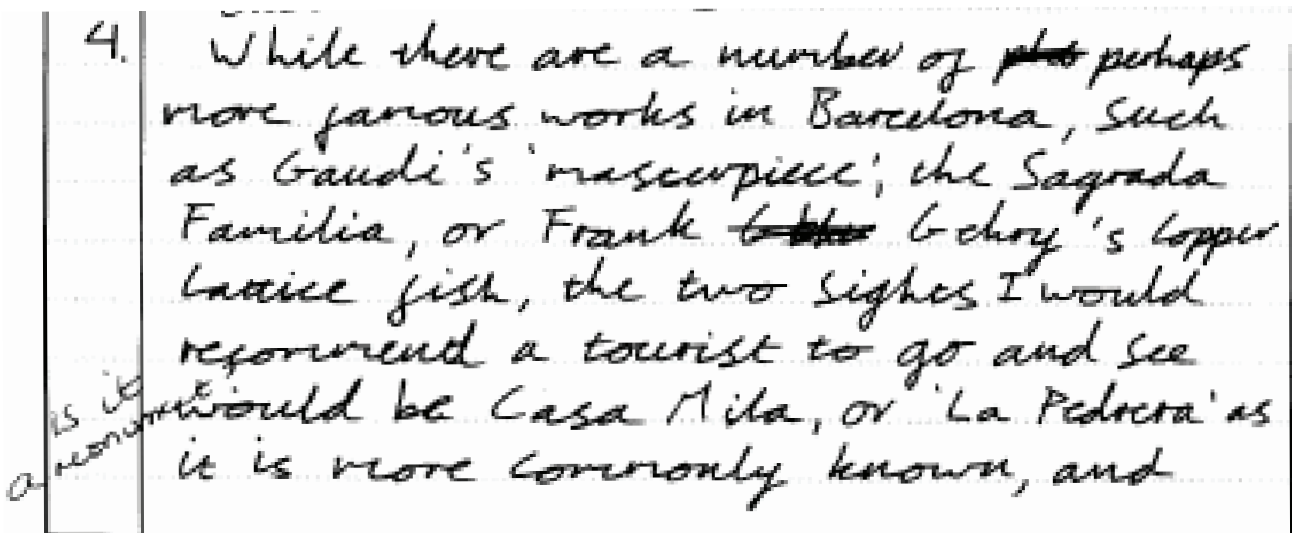 4. While there are a number of perhaps
more famous works in Barcelona, such
as Gaudi's 'masterpiece', the Sagrada
Familia, or Frank Gehry's copper
lattice fish, the two sights I would
recommend a tourist to go and see
would be Casa Mila, or 'La Pedrera' as
it is more commonly known, and
is it
a monument?